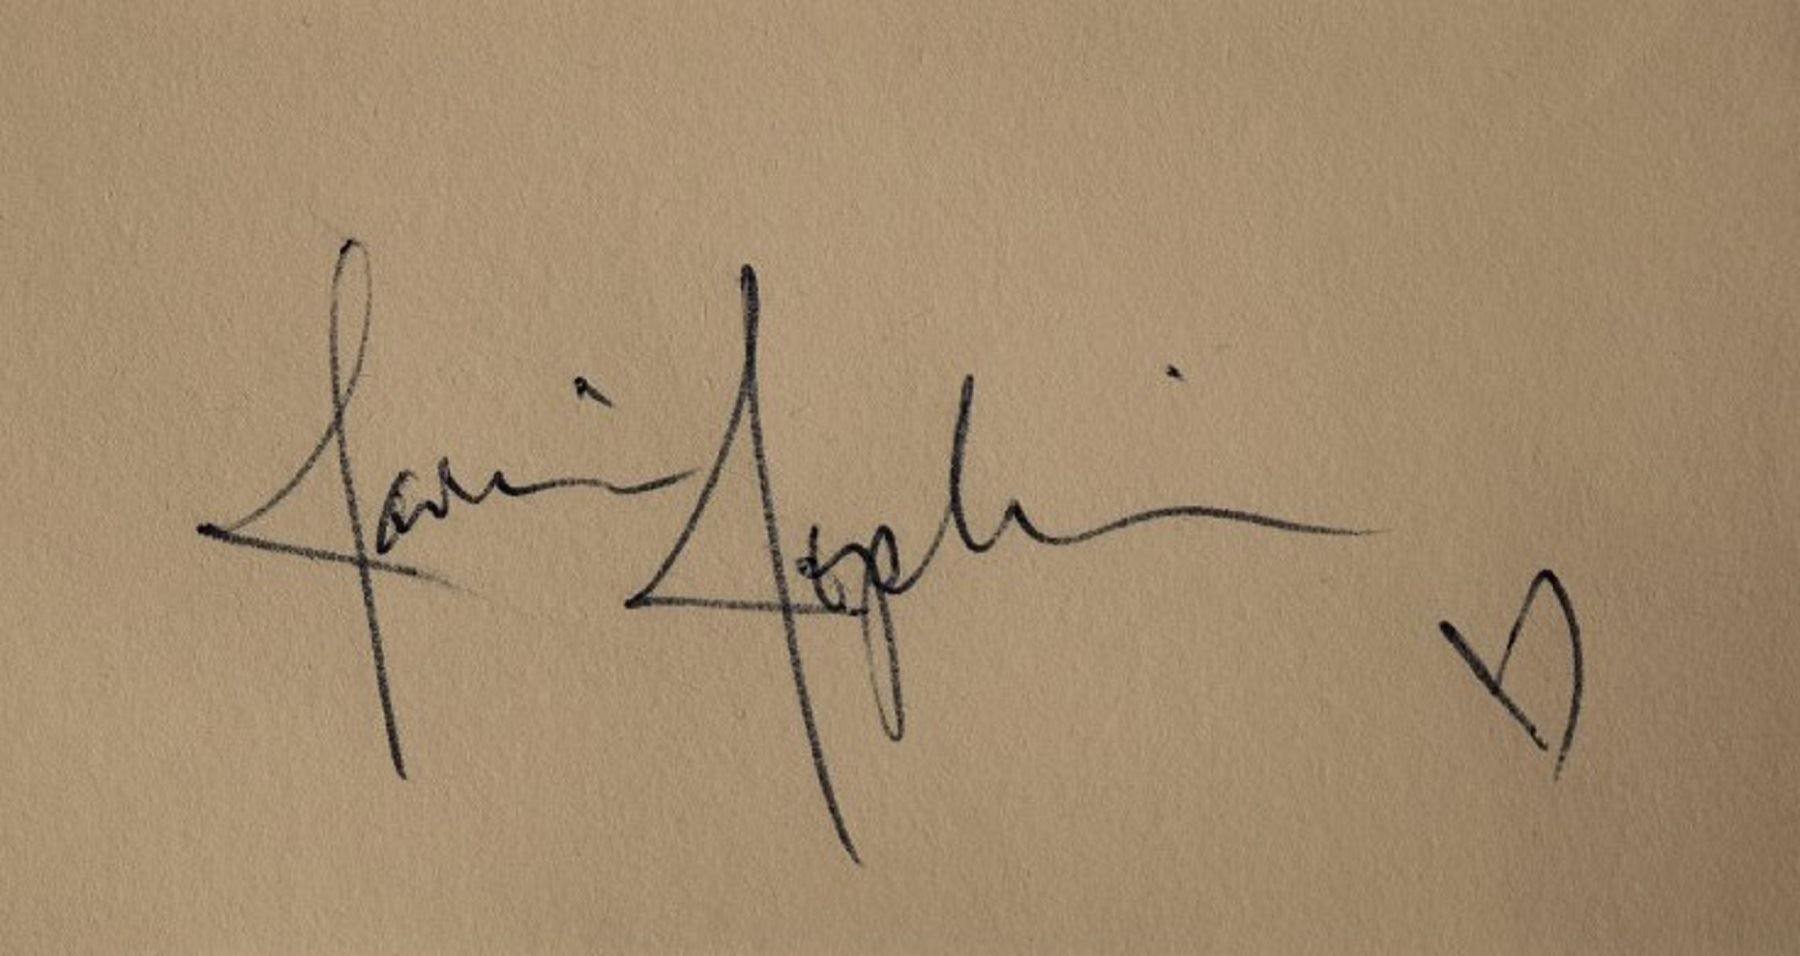 Janis Joplin